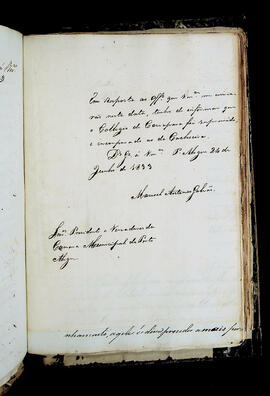 Em resposta ao Off.º que Vm.ces me envia
rão nesta data, tenho de informar que
o Collegio de Camaquam foi suprimido,
e encorporado ao da Cachoeira.
D.s G.e a Vm.ces P.to Alegre 24 de
Junho de 1833
Manoel Antonio Galvão
Snr.es Presidente e Vereadores da
Camara Municipal de Porto
Alegre
nhamento, aquele é desproporcionado a mais